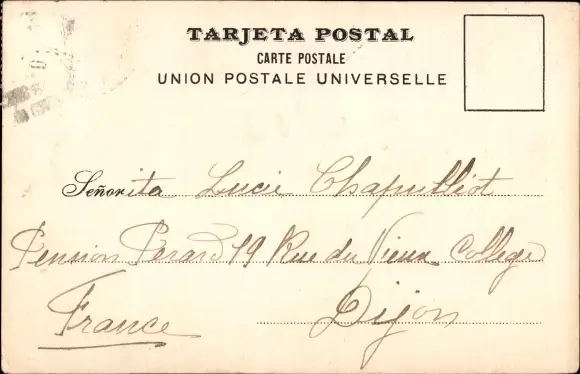 TARJETA POSTAL
CARTE POSTALE
UNION POSTALE UNIVERSELLE
Señorita Lucie Chapulliot
Pension Perard 19 Rue du Vieux College
Dijon
France